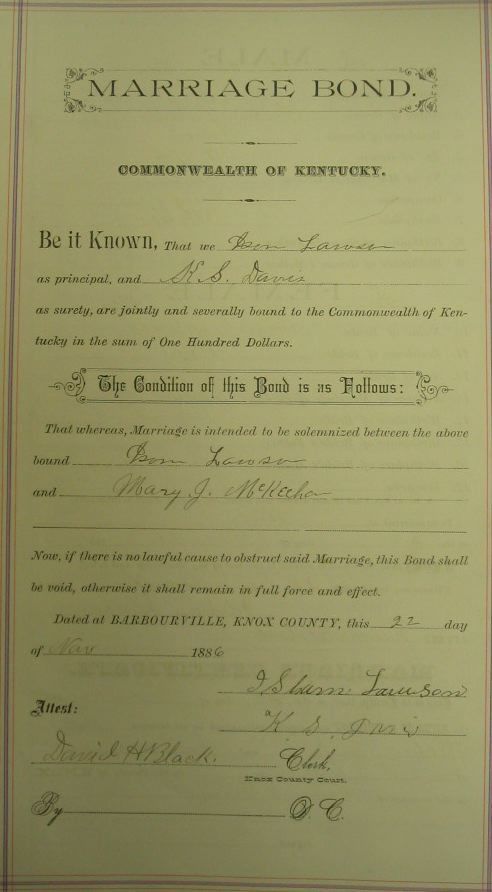 MARRIAGE BOND.
COMMONWEALTH OF KENTUCKY.
Be it Known, That we Isom Lawson
as principal, and K. S. Davis
as surety, are jointly and severally bound to the Commonwealth of Ken-
tucky in the sum of One Hundred Dollars.
The Condition of this Bond is as Follows:
That whereas, Marriage is intended to be solemnized between the above
bound Isom Lawson
and Mary J. McKeehan
Now, if there is no lawful cause to obstruct said Marriage, this Bond shall
be void, otherwise it shall remain in full force and effect.
Dated at BARBOURVILLE, KNOX COUNTY, this 22 day
of Nov 1886
Isham Lawson
Attest:
K S Davis
David H. Black. Clerk,
Knox County Court.
By D. C.